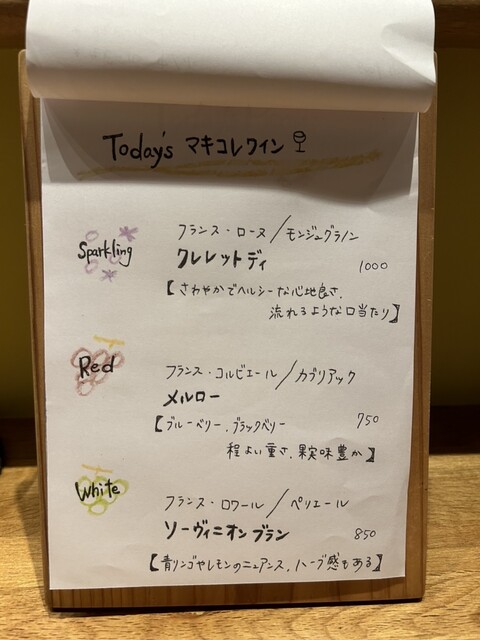 Today's マキコレワイン
Sparkling
フランス・ローヌ／モンジュグラノン
クレレットディ 1000
【さわやかでヘルシーな心地良さ、
流れるような口当たり】
Red
フランス・コルビエール／カブリアック
メルロー
【ブルーベリー、ブラックベリー 750
程よい重さ、果実味豊か】
White
フランス・ロワール／ペリエール
ソーヴィニオンブラン 850
【青リンゴやレモンのニュアンス、ハーブ感もある】